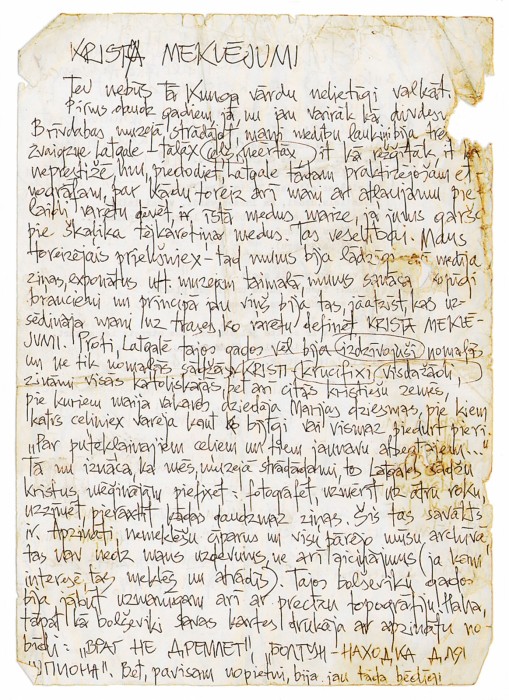 KRISTA MEKLĒJUMI
Tev nebūs tā Kunga vārdu nelietīgi valkāt.
Pirms daudz gadiem, jā nu jau vairāk kā divdes
Brīvdabas muzejā strādājot, mani medību lauki bija tre
zvaigzne Latgale - tālāx (ale, neērtāx) it kā režģītāk, it
neprestiže inu, piedodiet, Latgale tādam praktizējošam et-
nogrāfam, par kādu toreiz arī mani ar atļaujamu pie
laidi varētu dēvēt, ir īstā medus maize, ja jums garšo
pie šķaliķa tējkarotīņa medus. Tas veselībai. Mūsu
toreizējais priekšniex - tad mums bija lādzīgs arī mēdīja
ziņas, exponātus utt. muzejam taimalā, mums savāca kopīgi
braucieni un principā jau viņš bija tas, jāatzīst, kas uz-
sēdināja mani uz trases, ko varētu definēt KRISTA MEKLĒ-
JUMI. Proti, Latgalē tajos gados vēl bija izdzīvojuši nomaļās
un ne tik nomaļās sādžās KRISTI (krucifixi) visdažādi,
zināmi visās katoliskajās, bet arī citās kristiešu zemēs,
pie kuriem maija vakaros dziedāja Marijas dziesmas, pie kiem
katrs celiniex varēja kaut ko bijīgi vai vismaz piedurt pieri.
"Par putekļainajiem ceļiem un tiem jaunavu apsegtajiem..."
Tā nu iznāca, ka mēs, muzejā strādādami, to Latgales sādžu
kristus mēģinājām piefixēt: fotografēt, uzmērīt uz ātru roku,
uzzīmēt, pierakstīt kādas daudzmaz ziņas. Šis tas savākts
ir. Apzināti, nemeklēšu ciparus un visu pārējo mūsu arhīvā
tas nav nedz mans uzdevums, ne arī aicinājums (ja kami
interesē, tas meklēs un atradīs). Tajos boļševiku gados
bija jābūt uzmanīgam arī ar precīzu topogrāfiju. Haha,
tāpat kā boļševiki savas kartes drukāja ar apzinātu no-
bīdi: "ВРАГ НЕ ДРЕМЛЕТ" "БОЛТУН - НАХОДКА ДЛЯ
ШПИОНА". Bet, pavisam nopietni, bija jau tāda bēdīgi